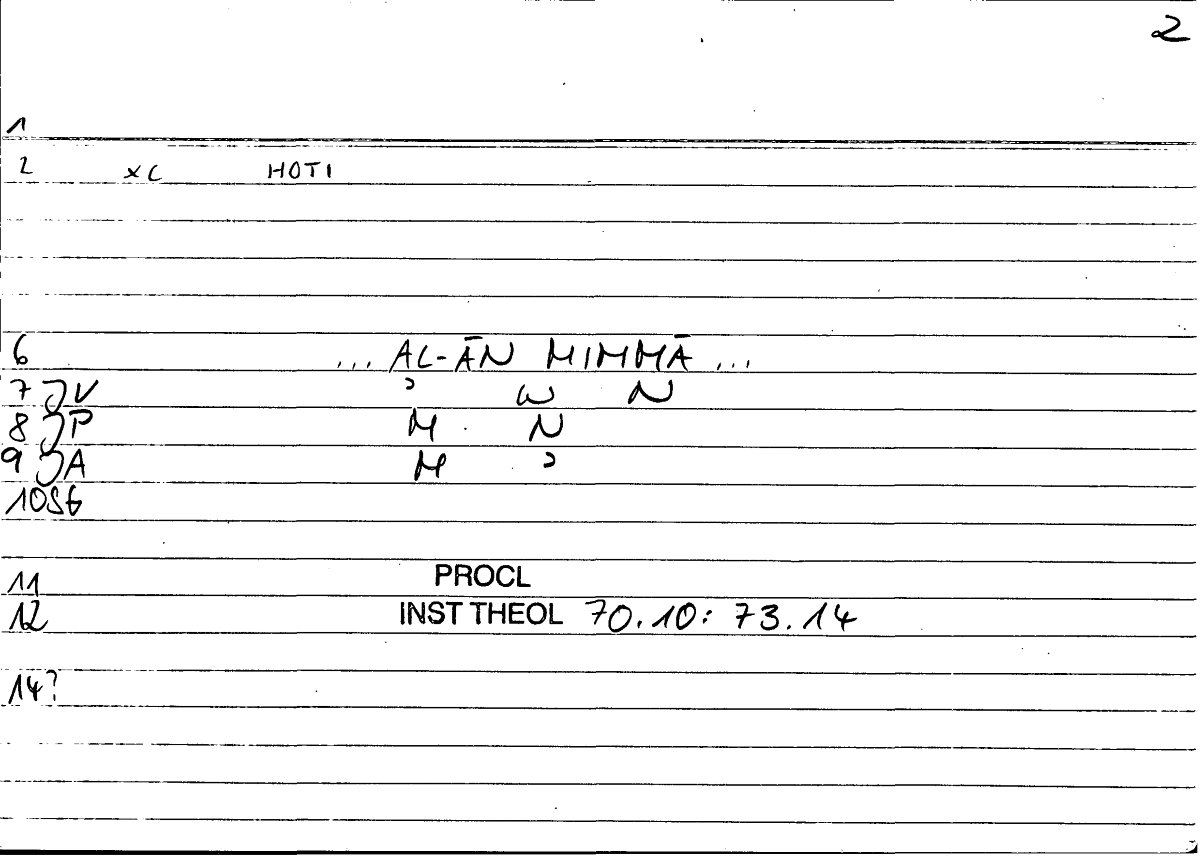 2
1
2 xC HOTI
6 ... ĀL-ĀN MIMMĀ ...
7 JV ɔ W N
8 JP M N
9 JA M ɔ
10 SG
11 PROCL
12 INST THEOL 70.10: 73.14
14?